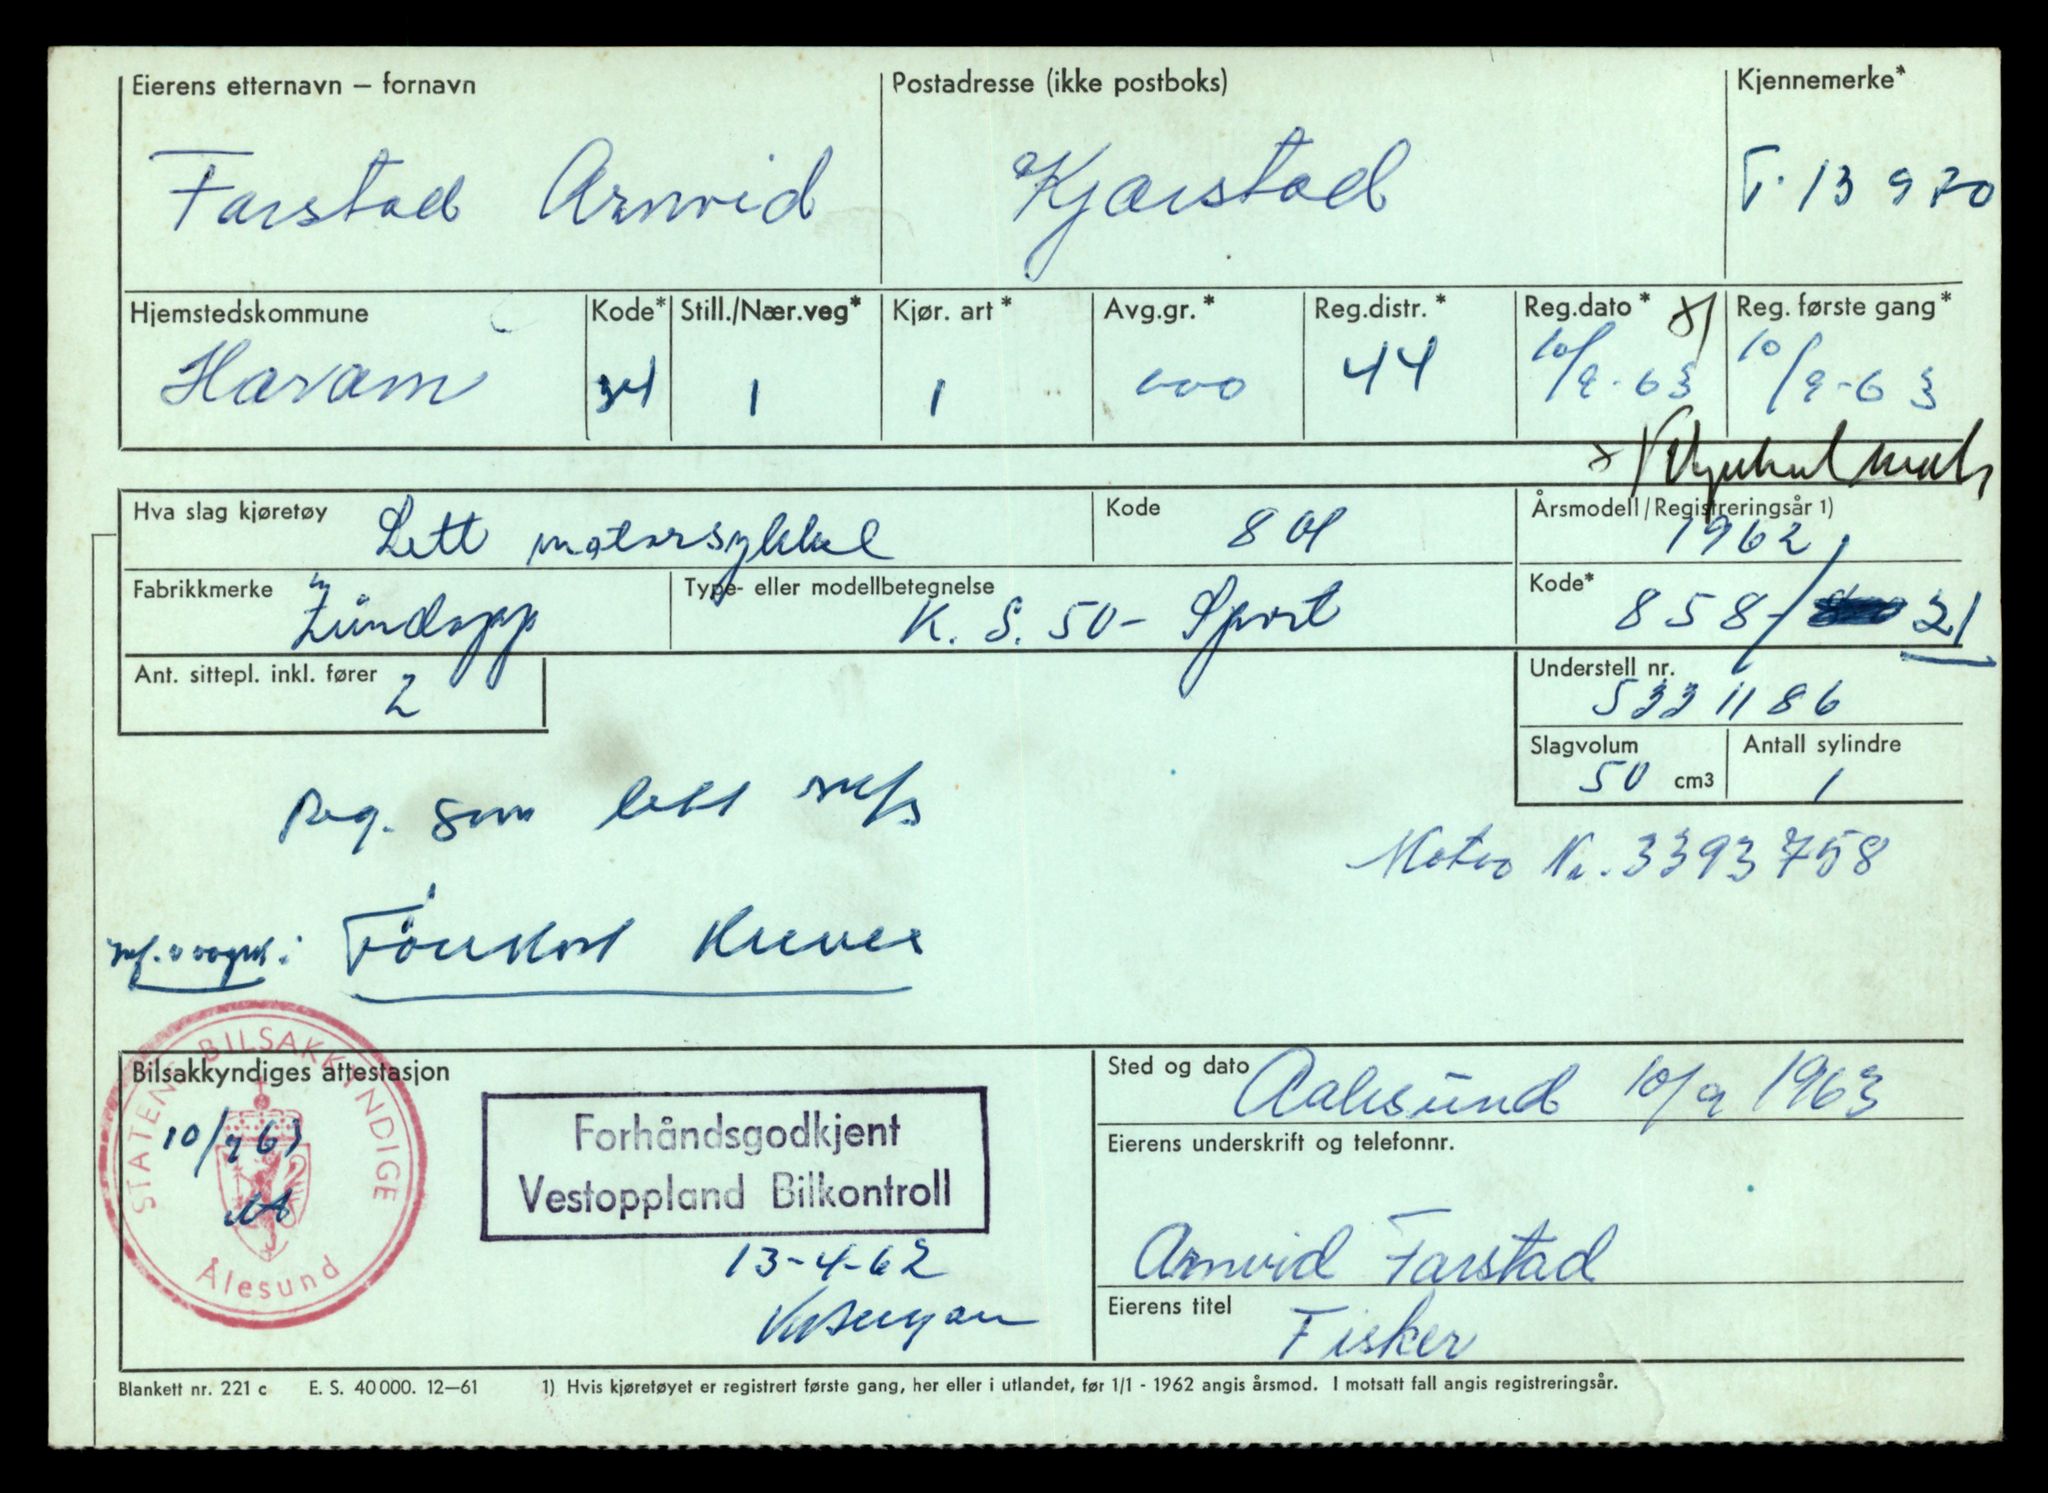 Eierens etternavn – fornavn
Postadresse (ikke postboks)
Kjennemerke*
Farstad Arnvid
Kjærstad
T-13970
Hjemstedskommune
Kode*
Still./Nær.veg*
Kjør. art*
Avg.gr.*
Reg.distr.*
Reg.dato*
Reg. første gang*
Haram
34
1
1
000
44
10/9-63
10/9-63
Hva slag kjøretøy
Lett motorsykkel
Kode
801
Årsmodell/Registreringsår 1)
1962
Fabrikkmerke
Zündapp
Type- eller modellbetegnelse
K. S. 50- Sport
Kode*
858- 21
Ant. sittepl. inkl. fører
2
Understell nr.
5331186
Slagvolum
50 cm3
Antall sylindre
1
Reg. som lett
Motor Nr. 3393758
Bilsakkyndiges attestasjon
STATENS BILSAKKYNDIGE
Ålesund
10/9 63
Forhåndsgodkjent
Vestoppland Bilkontroll
13-4-62
Sted og dato
Aalesund 10/9 1963
Eierens underskrift og telefonnr.
Arnvid Farstad
Eierens titel
Fisker
Blankett nr. 221 c E. S. 40 000. 12–61 1) Hvis kjøretøyet er registrert første gang, her eller i utlandet, før 1/1 - 1962 angis årsmod. I motsatt fall angis registreringsår.